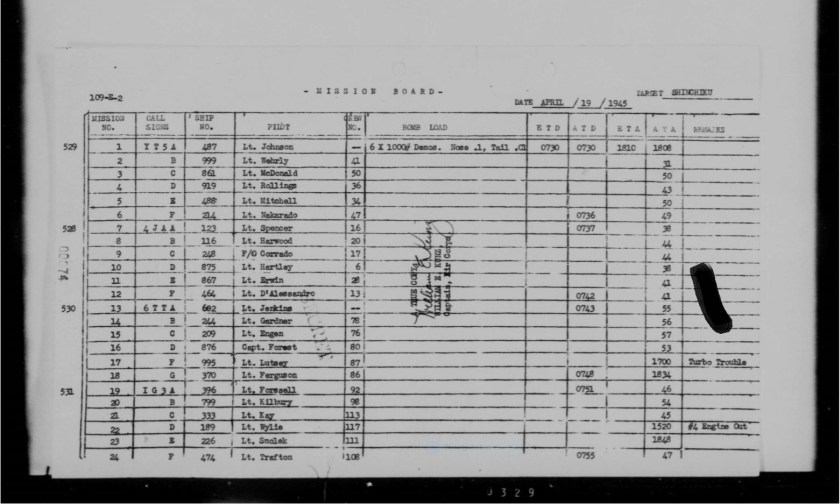 - MISSION BOARD -
109-E-2 DATE APRIL / 19 / 1945 TARGET SHINCHIKU
MISSION NO. CALL SIGNS SHIP NO. PILOT CREW NO. BOMB LOAD E T D A T D E T A A T A REMARKS
529 1 Y T 5 A 487 Lt. Johnson -- 6 X 1000# Demos. Nose .1, Tail .01 0730 0730 1810 1808
2 B 999 Lt. Wehrly 41 31
3 C 861 Lt. McDonald 50 50
4 D 919 Lt. Rollings 36 43
5 E 488 Lt. Mitchell 34 50
6 F 214 Lt. Nakarado 47 0736 49
528 7 4 J A A 123 Lt. Spencer 16 0737 38
8 B 116 Lt. Harwood 20 44
9 C 248 F/O Corrado 17 44
10 D 875 Lt. Hartley 6 38
11 E 867 Lt. Erwin 28 41
12 F 464 Lt. D'Alessandro 13 0742 41
530 13 6 T T A 682 Lt. Jenkins -- 0743 55
14 B 244 Lt. Gardner 78 56
15 C 209 Lt. Engen 76 57
16 D 876 Capt. Forest 80 53
17 F 995 Lt. Lutsey 87 1700 Turbo Trouble
18 G 370 Lt. Ferguson 86 0748 1834
531 19 I G 3 A 396 Lt. Forssell 92 0751 46
20 B 799 Lt. Kilbury 98 54
21 C 333 Lt. Kay 113 45
22 D 189 Lt. Wylie 117 1520 #4 Engine Out
23 E 226 Lt. Smolek 111 1848
24 F 474 Lt. Trafton 108 0755 47
TRUE COPY
William E. Kunz
WILLIAM E. KUNZ
Captain, Air Corps
SECRET
0329